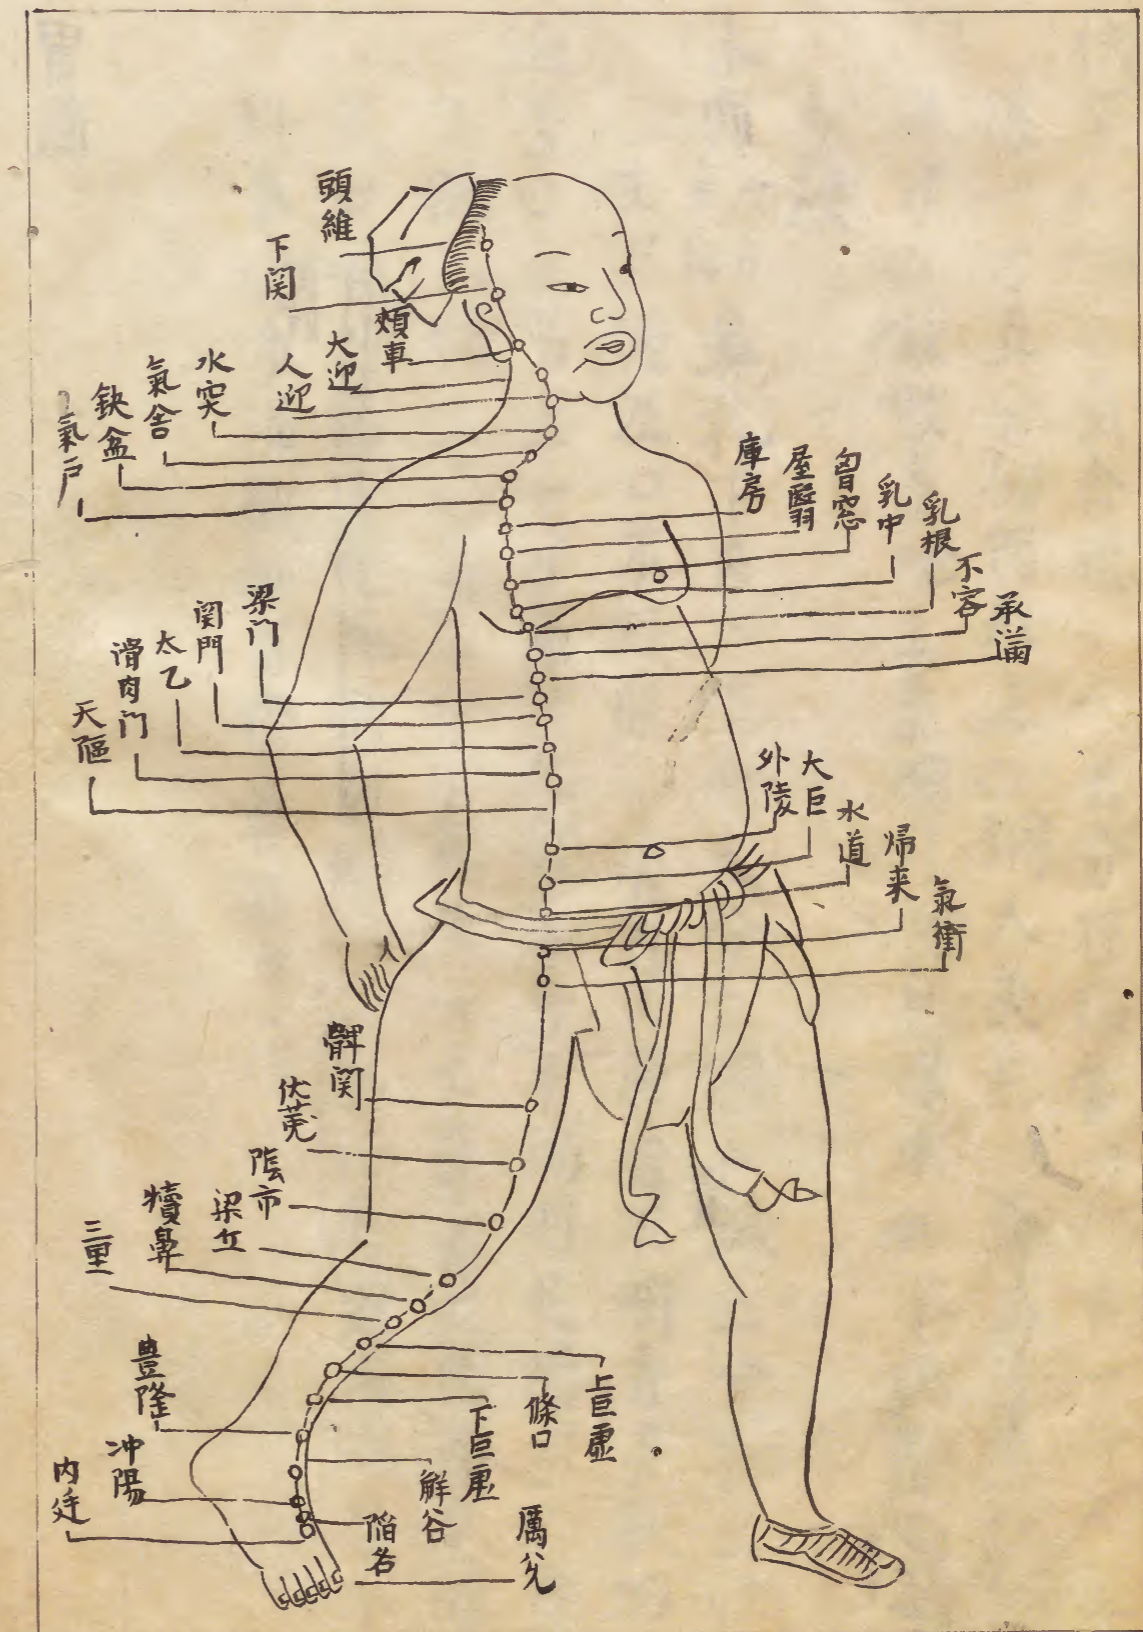 頭維
下関
頬車
大迎
人迎
水突
氣舎
缺盆
氣戸
庫房
屋翳
胷窓
乳中
乳根
不容
承滿
梁门
関門
太乙
滑肉门
天樞
外陵
大巨
水道
帰来
氣衝
髀関
伏菟
陰市
梁丘
犢鼻
三里
上巨虚
條口
下巨虚
豊隆
解谷
冲陽
陷谷
内廷
厲兊